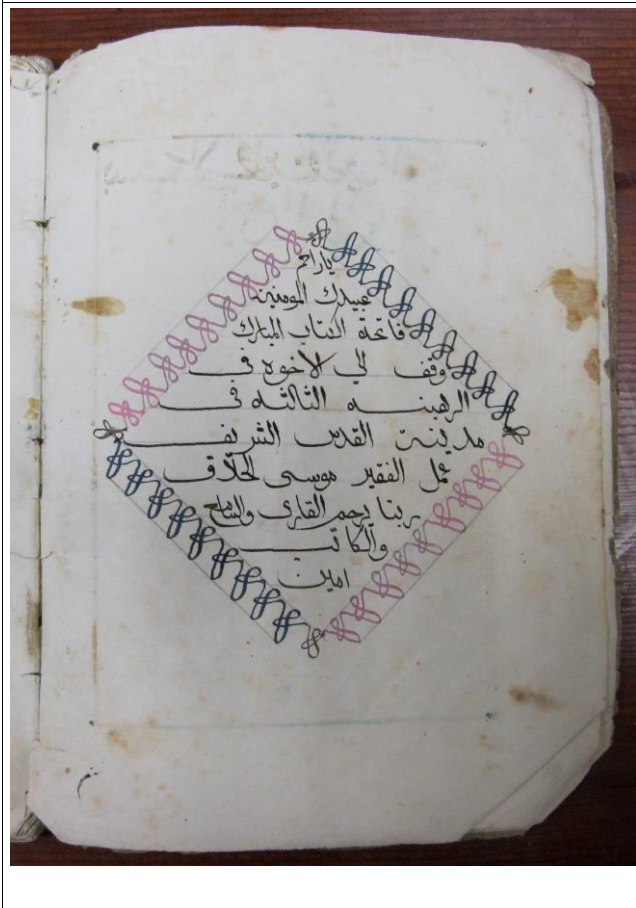 ياراحم
عبيدك المومنين
فاتحة الكتاب المبارك
وقف لي الاخوه في
الرهبنه الثالثه في
مدينة القدس الشريف
عمل الفقير موسى الحلاق
ربنا يرحم القارى والسامع
والكاتب
امين